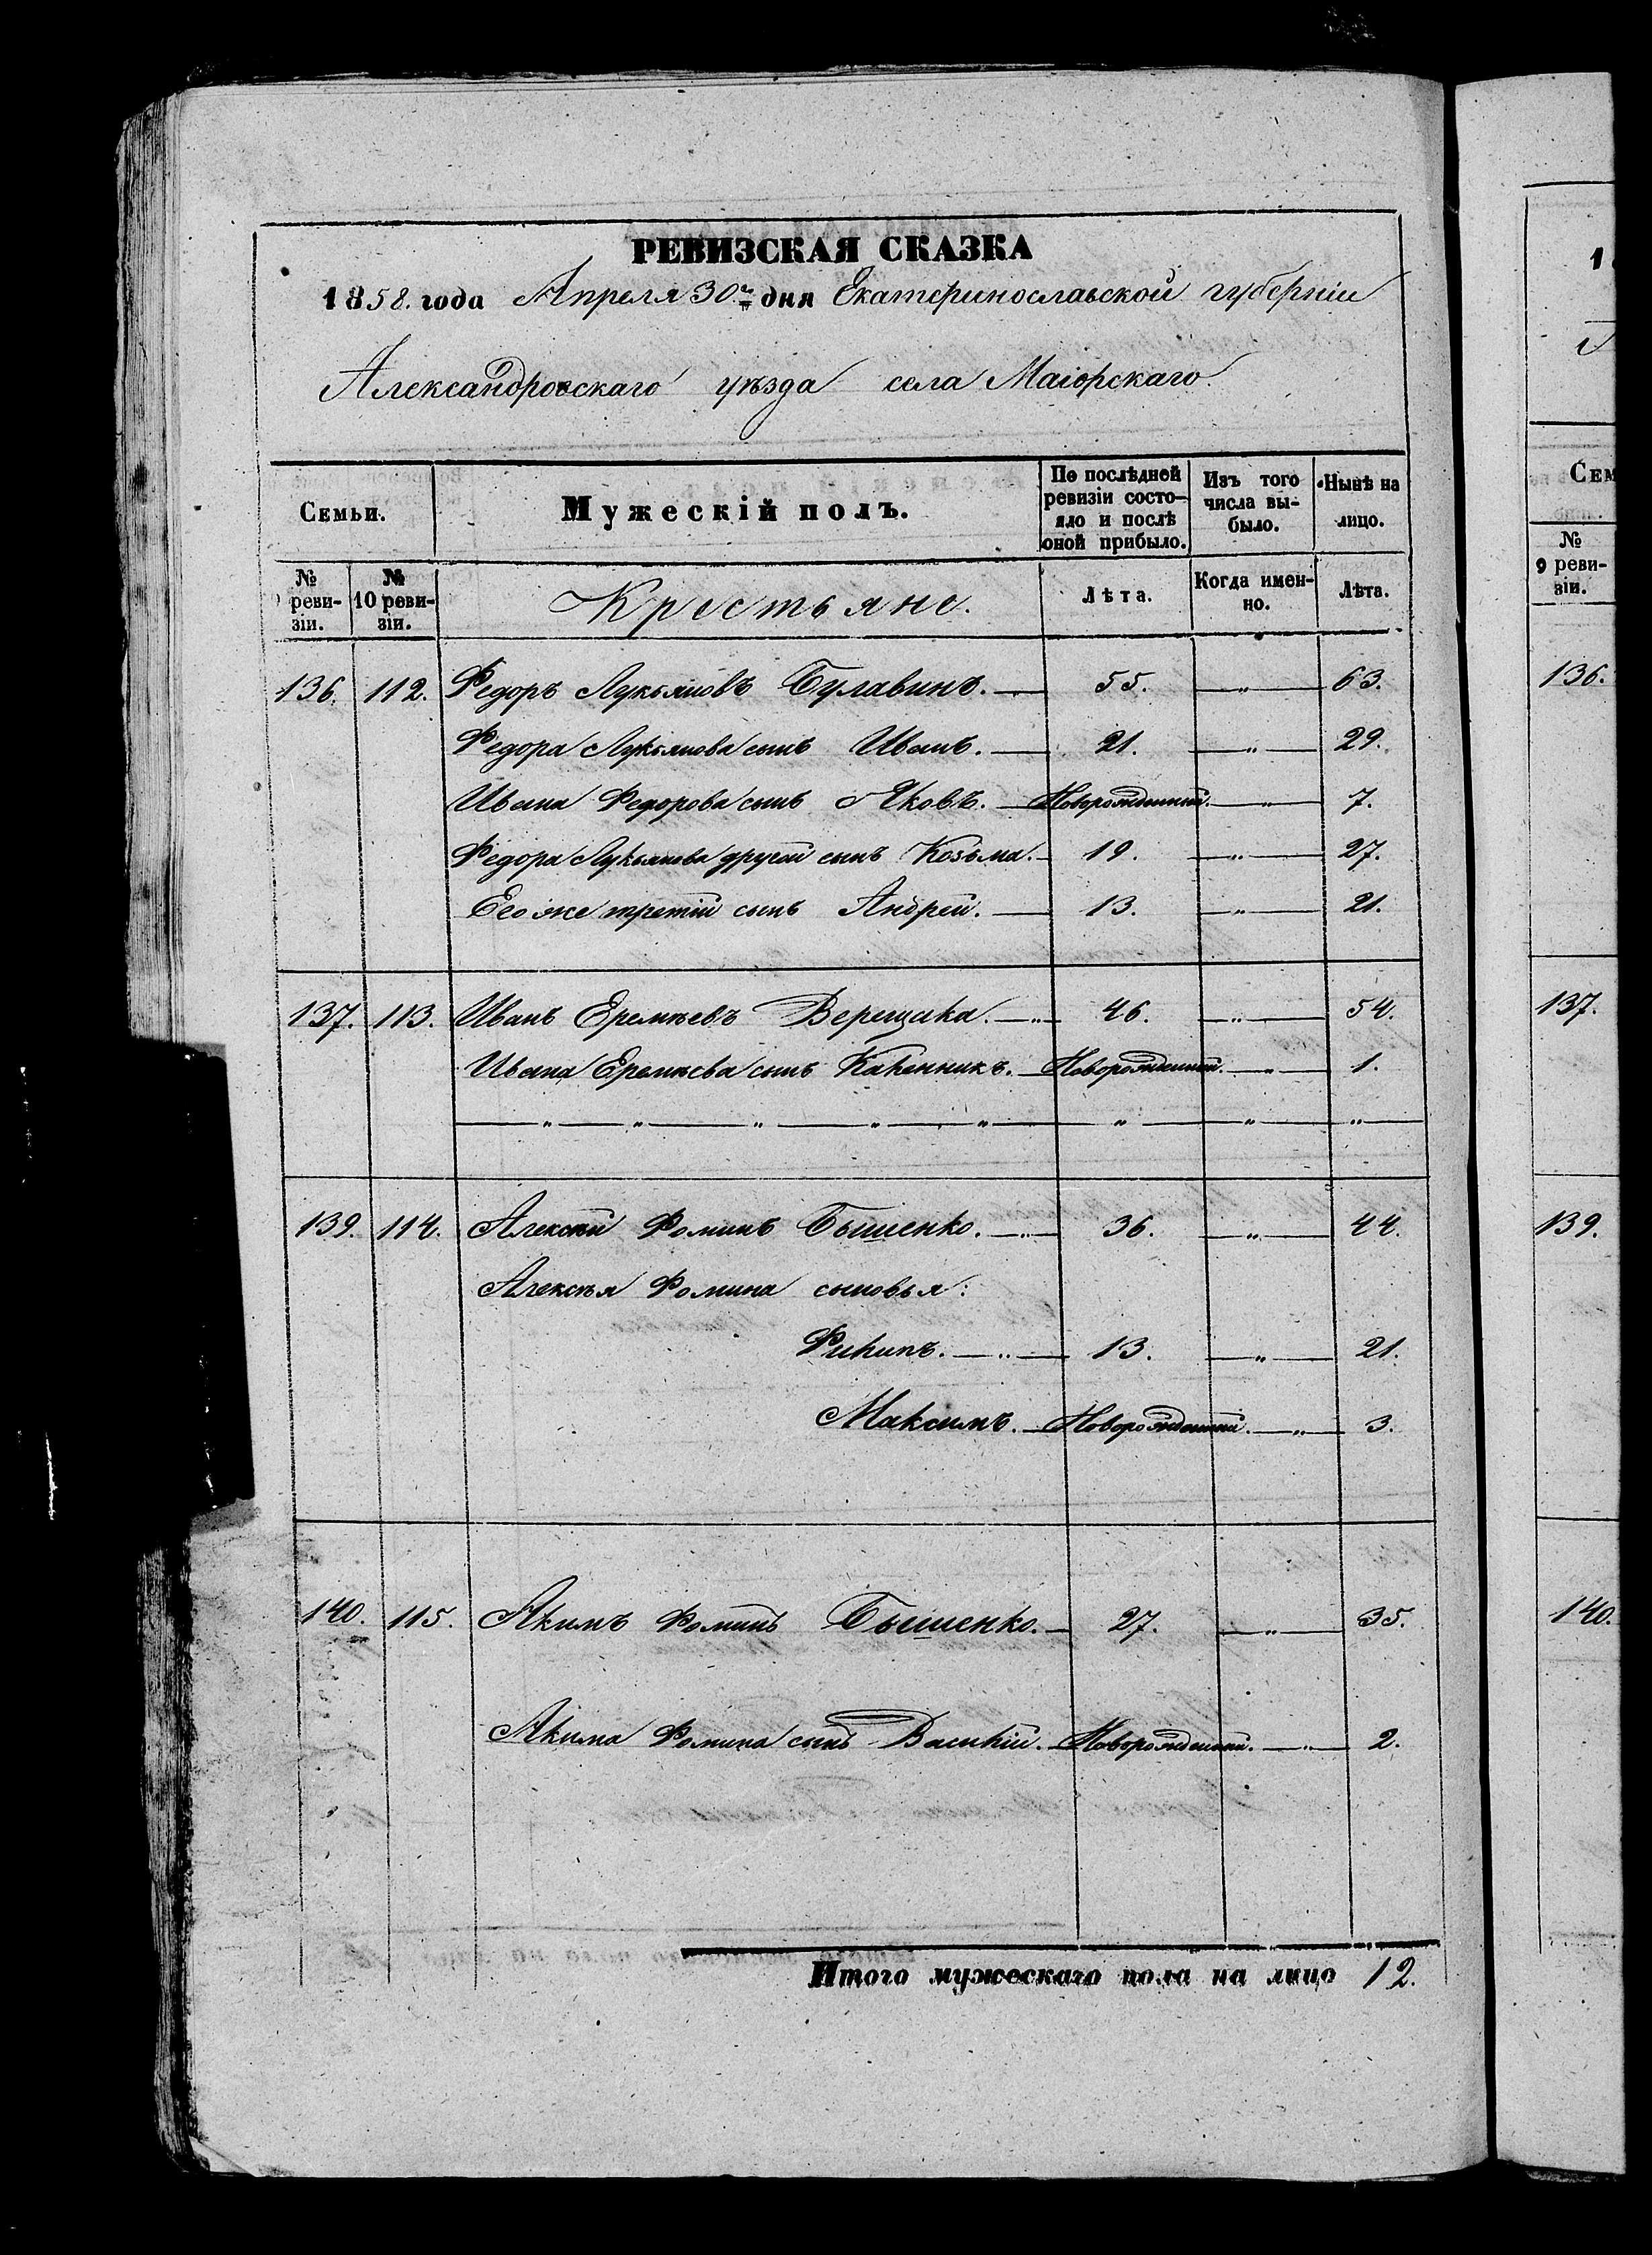 РЕВИЗСКАЯ СКАЗКА
1858. года Апреля 30го дня Екатеринославской губерніи
Александровскаго уѣзда села Маіорскаго.
Семьи.
Мужескій полъ.
По послѣдней ревизіи состо-
яло и послѣ
оной прибыло.
Изъ того
числа вы-
было.
Нынѣ на
лицо.
№
реви-
зіи.
№
10 реви-
зіи.
Крестьяне.
Лѣта.
Когда имен-
но.
Лѣта.
136. 112. Федоръ Лукьяновъ Булавинъ. 55. " 63.
Федора Лукьянова сынъ Иванъ. 21. " 29.
Ивана Федорова сынъ Яковъ. Новорожденный. " 7.
Федора Лукьянова другой сынъ Козьма. 19. " 27.
Его же третій сынъ Андрей. 13. " 21.
137. 113. Иванъ Еремѣевъ Верещака. " 46. " 54.
Ивана Еремѣева сынъ Каленникъ. Новорожденный. " 1.
" " " " " " " "
139. 114. Алексѣй Фоминъ Бышенко. " 36. " 44.
Алексѣя Фомина сыновья:
Филипъ. " 13. " 21.
Максимъ. Новорожденный. " 3.
140. 115. Акимъ Фоминъ Бышенко. 27. " 35.
Акима Фомина сынъ Василій. Новорожденный. " 2.
Итого мужескаго пола на лицо 12.
1
Сем
№
9 реви-
зіи.
136.
137.
139.
140.